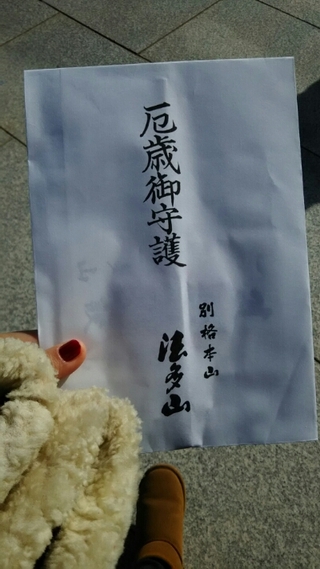 厄歳御守護
別格本山
法多山